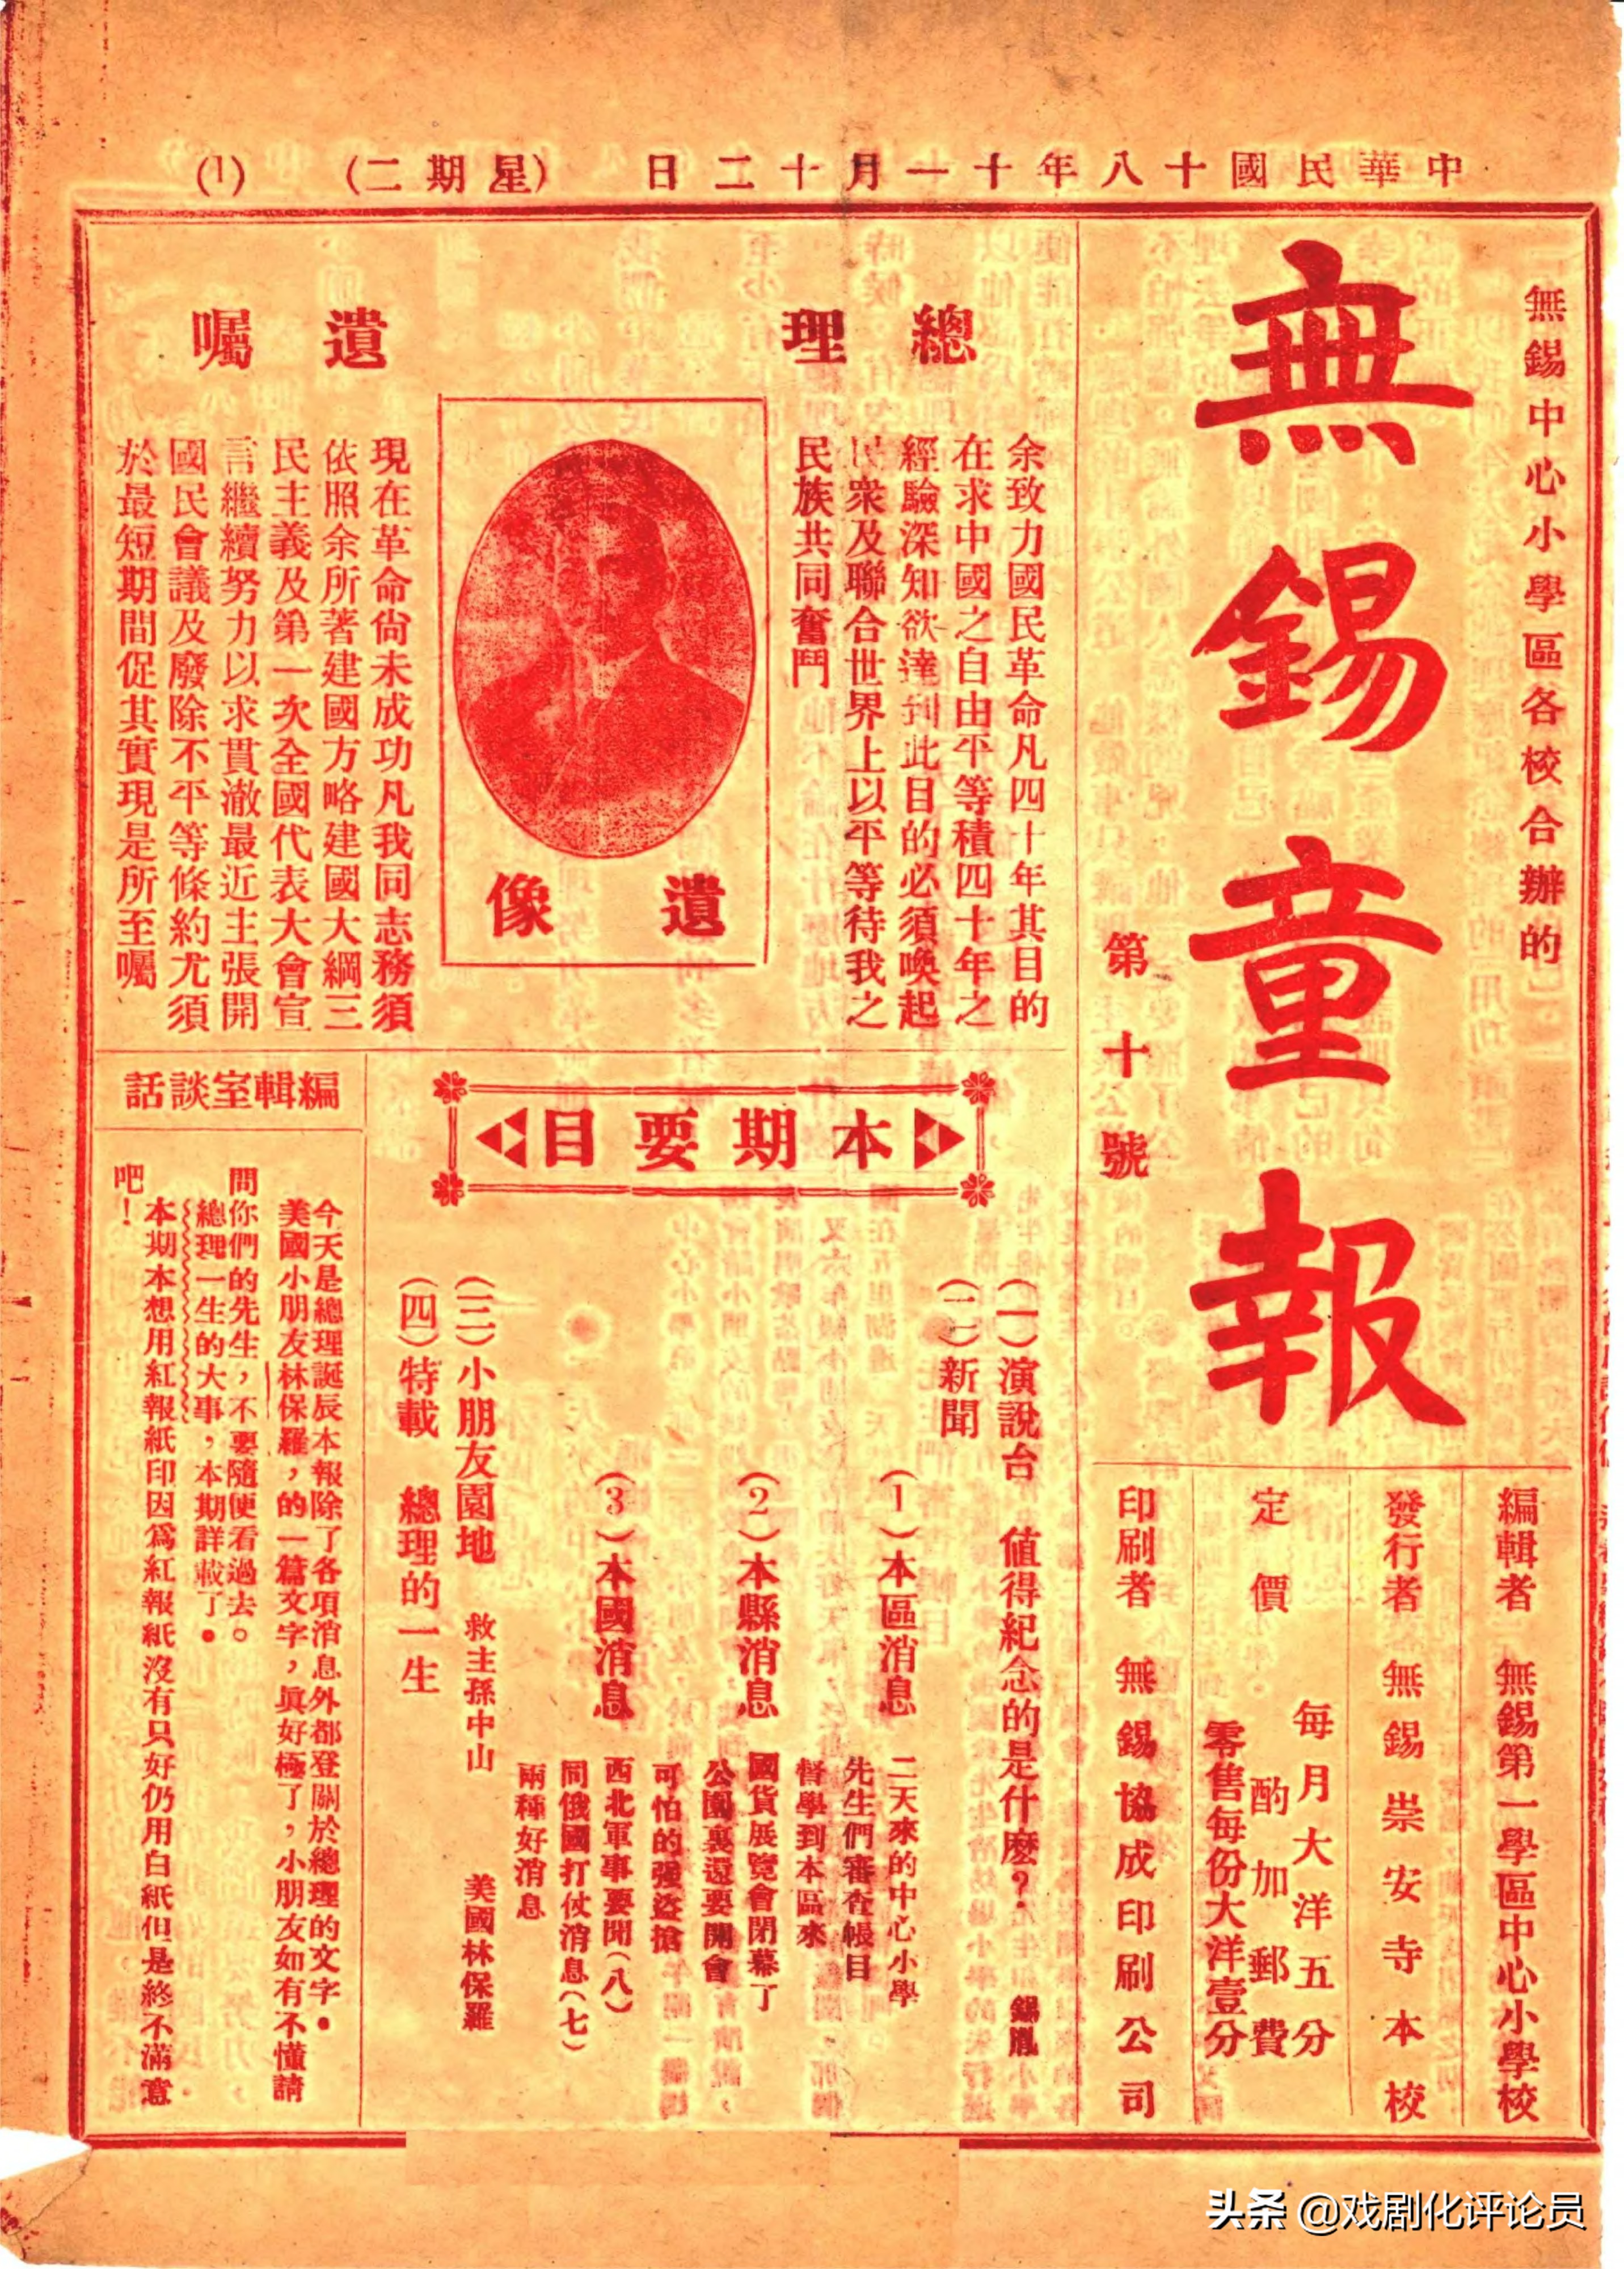 中華民國十八年十一月十二日
(星期二)
(1)
無錫中心小學區各校合辦的
無錫童報
第十號
編輯者 無錫第一學區中心小學校
發行者 無錫崇安寺本校
定價
每月大洋五分
酌加郵費
零售每份大洋壹分
印刷者 無錫協成印刷公司
總理
遺囑
余致力國民革命凡四十年其目的
在求中國之自由平等積四十年之
經驗深知欲達到此目的必須喚起
民衆及聯合世界上以平等待我之
民族共同奮鬥
遺像
現在革命尚未成功凡我同志務須
依照余所著建國方略建國大綱三
民主義及第一次全國代表大會宣
言繼續努力以求貫澈最近主張開
國民會議及廢除不平等條約尤須
於最短期間促其實現是所至囑
本期要目
(一)演說台 值得紀念的是什麼? 錫胤
(二)新聞
(1)本區消息
二天來的中心小學
先生們審查帳目
督學到本區來
(2)本縣消息
國貨展覽會閉幕了
公園裏還要開會
可怕的强盜搶
(3)本國消息
西北軍事要聞(八)
同俄國打仗消息(七)
兩種好消息
(三)小朋友園地 救主孫中山 美國林保羅
(四)特載 總理的一生
編輯室談話
今天是總理誕辰本報除了各項消息外都登關於總理的文字.
美國小朋友林保羅,的一篇文字,眞好極了,小朋友如有不懂請
問你們的先生,不要隨便看過去。
總理一生的大事,本期詳載了.
本期本想用紅報紙印因爲紅報紙沒有只好仍用白紙但是終不滿意
吧!
头条 @戏剧化评论员